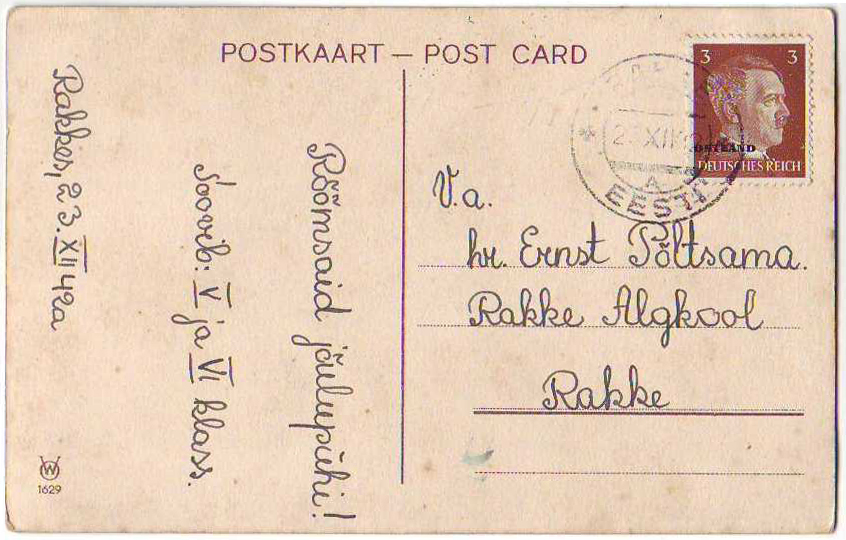 POSTKAART — POST CARD
3 3
OSTLAND
DEUTSCHES REICH
A
EESTI
Rakkes, 23. XII 42a
Rõõmsaid jõulupühi!
Soovib: V ja VI klass.
V.a.
hr. Ernst Põltsama.
Rakke Algkool
Rakke
W
1629